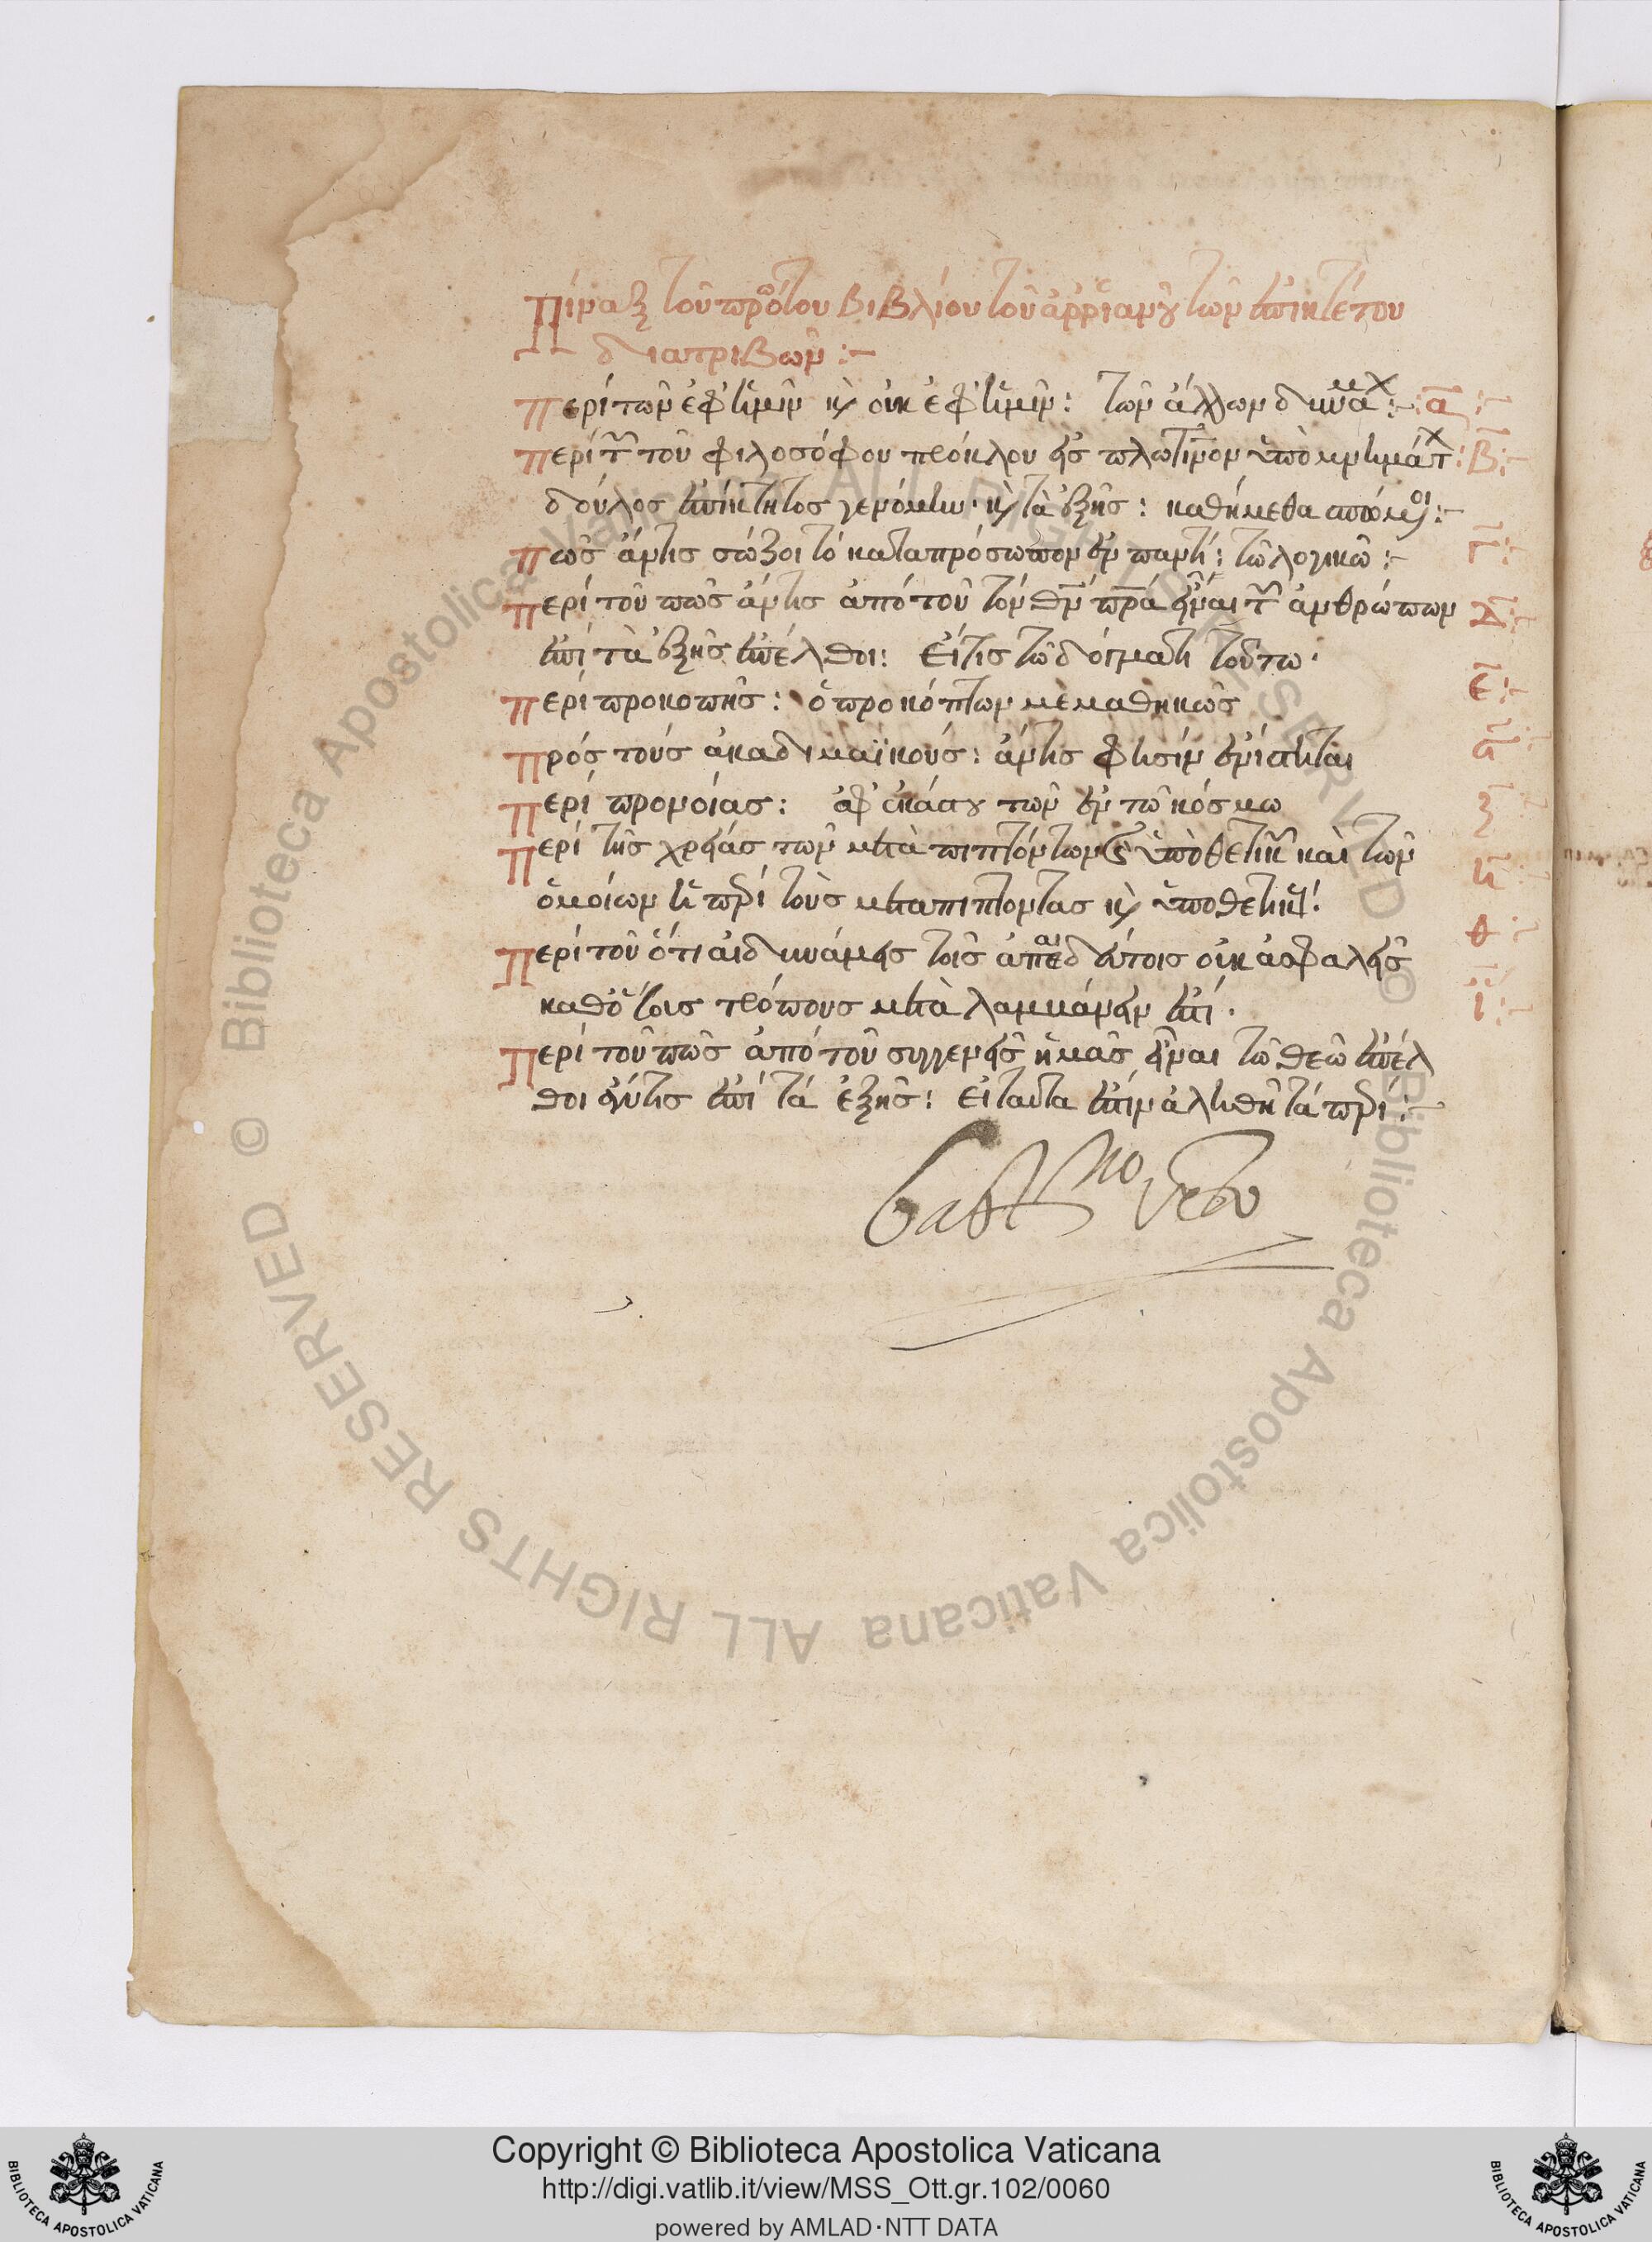 Πίναξ τοῦ πρώτου βιβλίου τοῦ ἀρριανοῦ τῶν ἐπικτέτου
διατριβῶν :-
περί τῶν ἐφ' ἡμῖν κ οὐκ ἐφ' ἡμῖν : τῶν ἄλλων :- α :-
περί τοῦ φιλοσόφου πρόκλου εἰς πλωτῖνον : β :-
δοῦλος ἐπίκτητος γενόμην · κ τὰ ἑξῆς : καθήμεθα :-
πῶς ἄντις σώζοι τό καταπρόσωπον ἐν παντί : τῶ λογικῶ :- Γ :-
περί τοῦ πῶς ἄντις ἀπό τοῦ τόν θν πρα εἶναι τ ἀνθρώπων Δ :-
ἐπί τὰ ἑξῆς ἐπέλθοι : εἴτις τῶ δόγματι τούτω ·
περί προκοπῆς : ὁ προκόπτων μεμαθηκῶς ε :-
πρός τούς ἀκαδιμαϊκούς : ἄντις φησίν ἐνίσταται
περί προνοίας : ἀφ' ἑκάστου τῶν ἐν τῶ κόσμω ζ
περί τῆς χρείας τῶν μεταπιπτόντων κ ὑποθετικ καὶ τῶν η
ὁμοίων ἡ περί τοὺς μεταπίπτοντας κ
περί τοῦ ὅτι αἱ δυνάμεις τοῖς ἀπαιδεύτοις οὐκ ἀσφαλεῖς θ
καθ' ὅσοις τρόπους μεταλαμβάνειν ἐστί · ι :-
περί τοῦ πῶς ἀπό τοῦ συγγενεῖς ἡμᾶς εἶναι τῶ θεῶ ἐπέλ
θοι ἄντις ἐπί τά ἑξῆς : εἰ ταῦτα ἐστίν ἀληθῆ τά περί :-
Copyright © Biblioteca Apostolica Vaticana
http://digi.vatlib.it/view/MSS_Ott.gr.102/0060
powered by AMLAD·NTT DATA
BIBLIOTECA APOSTOLICA VATICANA
BIBLIOTECA APOSTOLICA VATICANA
© Biblioteca Apostolica Vaticana ALL RIGHTS RESERVED © Biblioteca Apostolica Vaticana ALL RIGHTS RESERVED